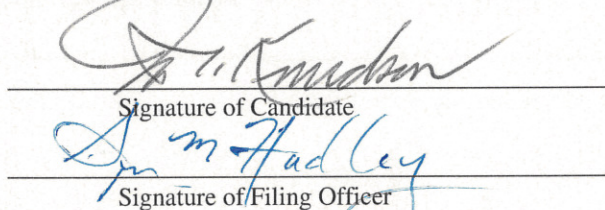 Knudson
Signature of Candidate
M Hadley
Signature of Filing Officer